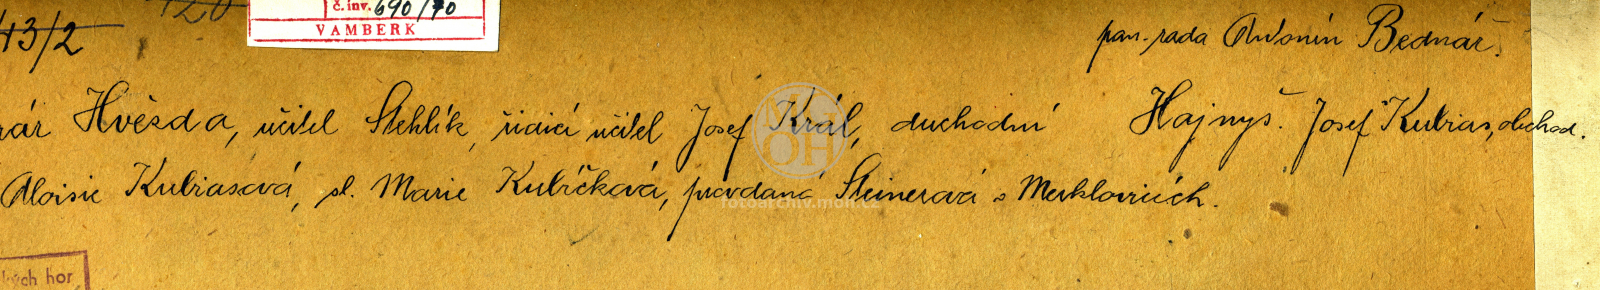 120
č. inv. 690/70
VAMBERK
13/2
pan. rada Antonín Bednář.
ář Hvězda, učitel Stehlík, řídící učitel Josef Král, duchodní Hajnyš. Josef Kubias, obchod.
Aloisie Kubiasová, sl. Marie Kubíčková, provdaná Steinerová v Merklovicích.
fotoarchiv.moh.cz
ých hor